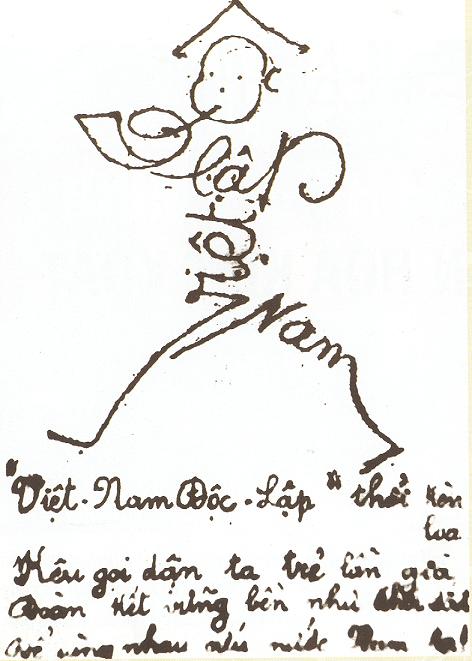 lập
Việt
Nam
"Việt-Nam Độc-Lập" thổi kèn
loa
Kêu gọi dân ta trẻ lẫn già
Đoàn kết vững bền như khối sắt
Để cùng nhau cứu nước Nam ta!